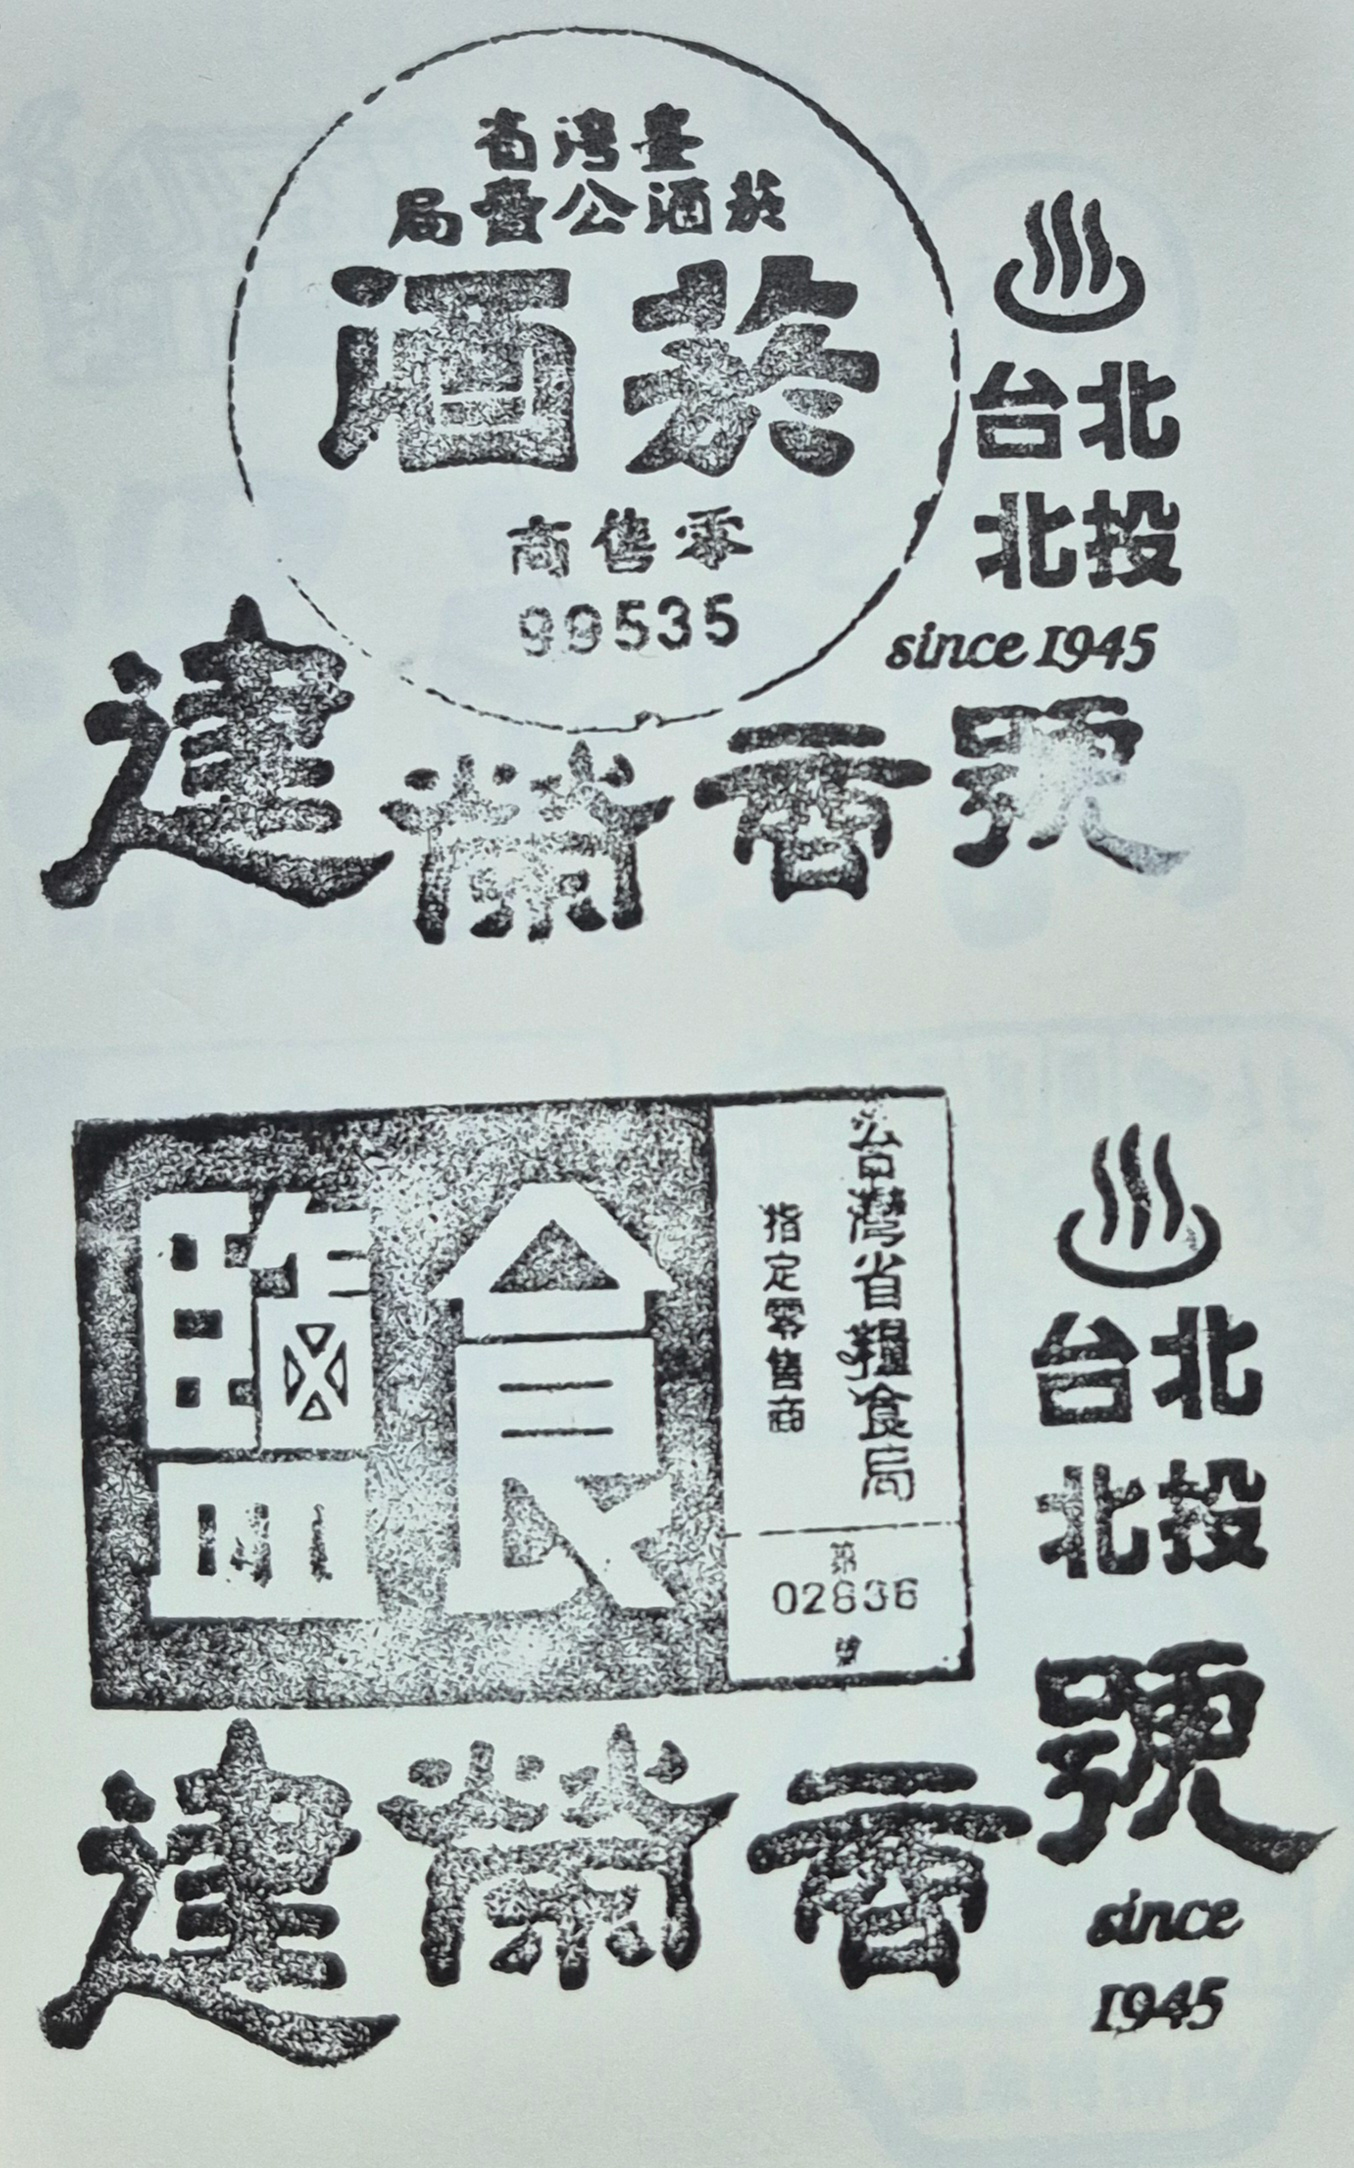 臺灣省
菸酒公賣局
菸酒
零售商
99535
台北
北投
since 1945
建榮香號
台灣省糧食局
指定零售商
第
02636
號
食鹽
台北
北投
建榮香號
since
1945